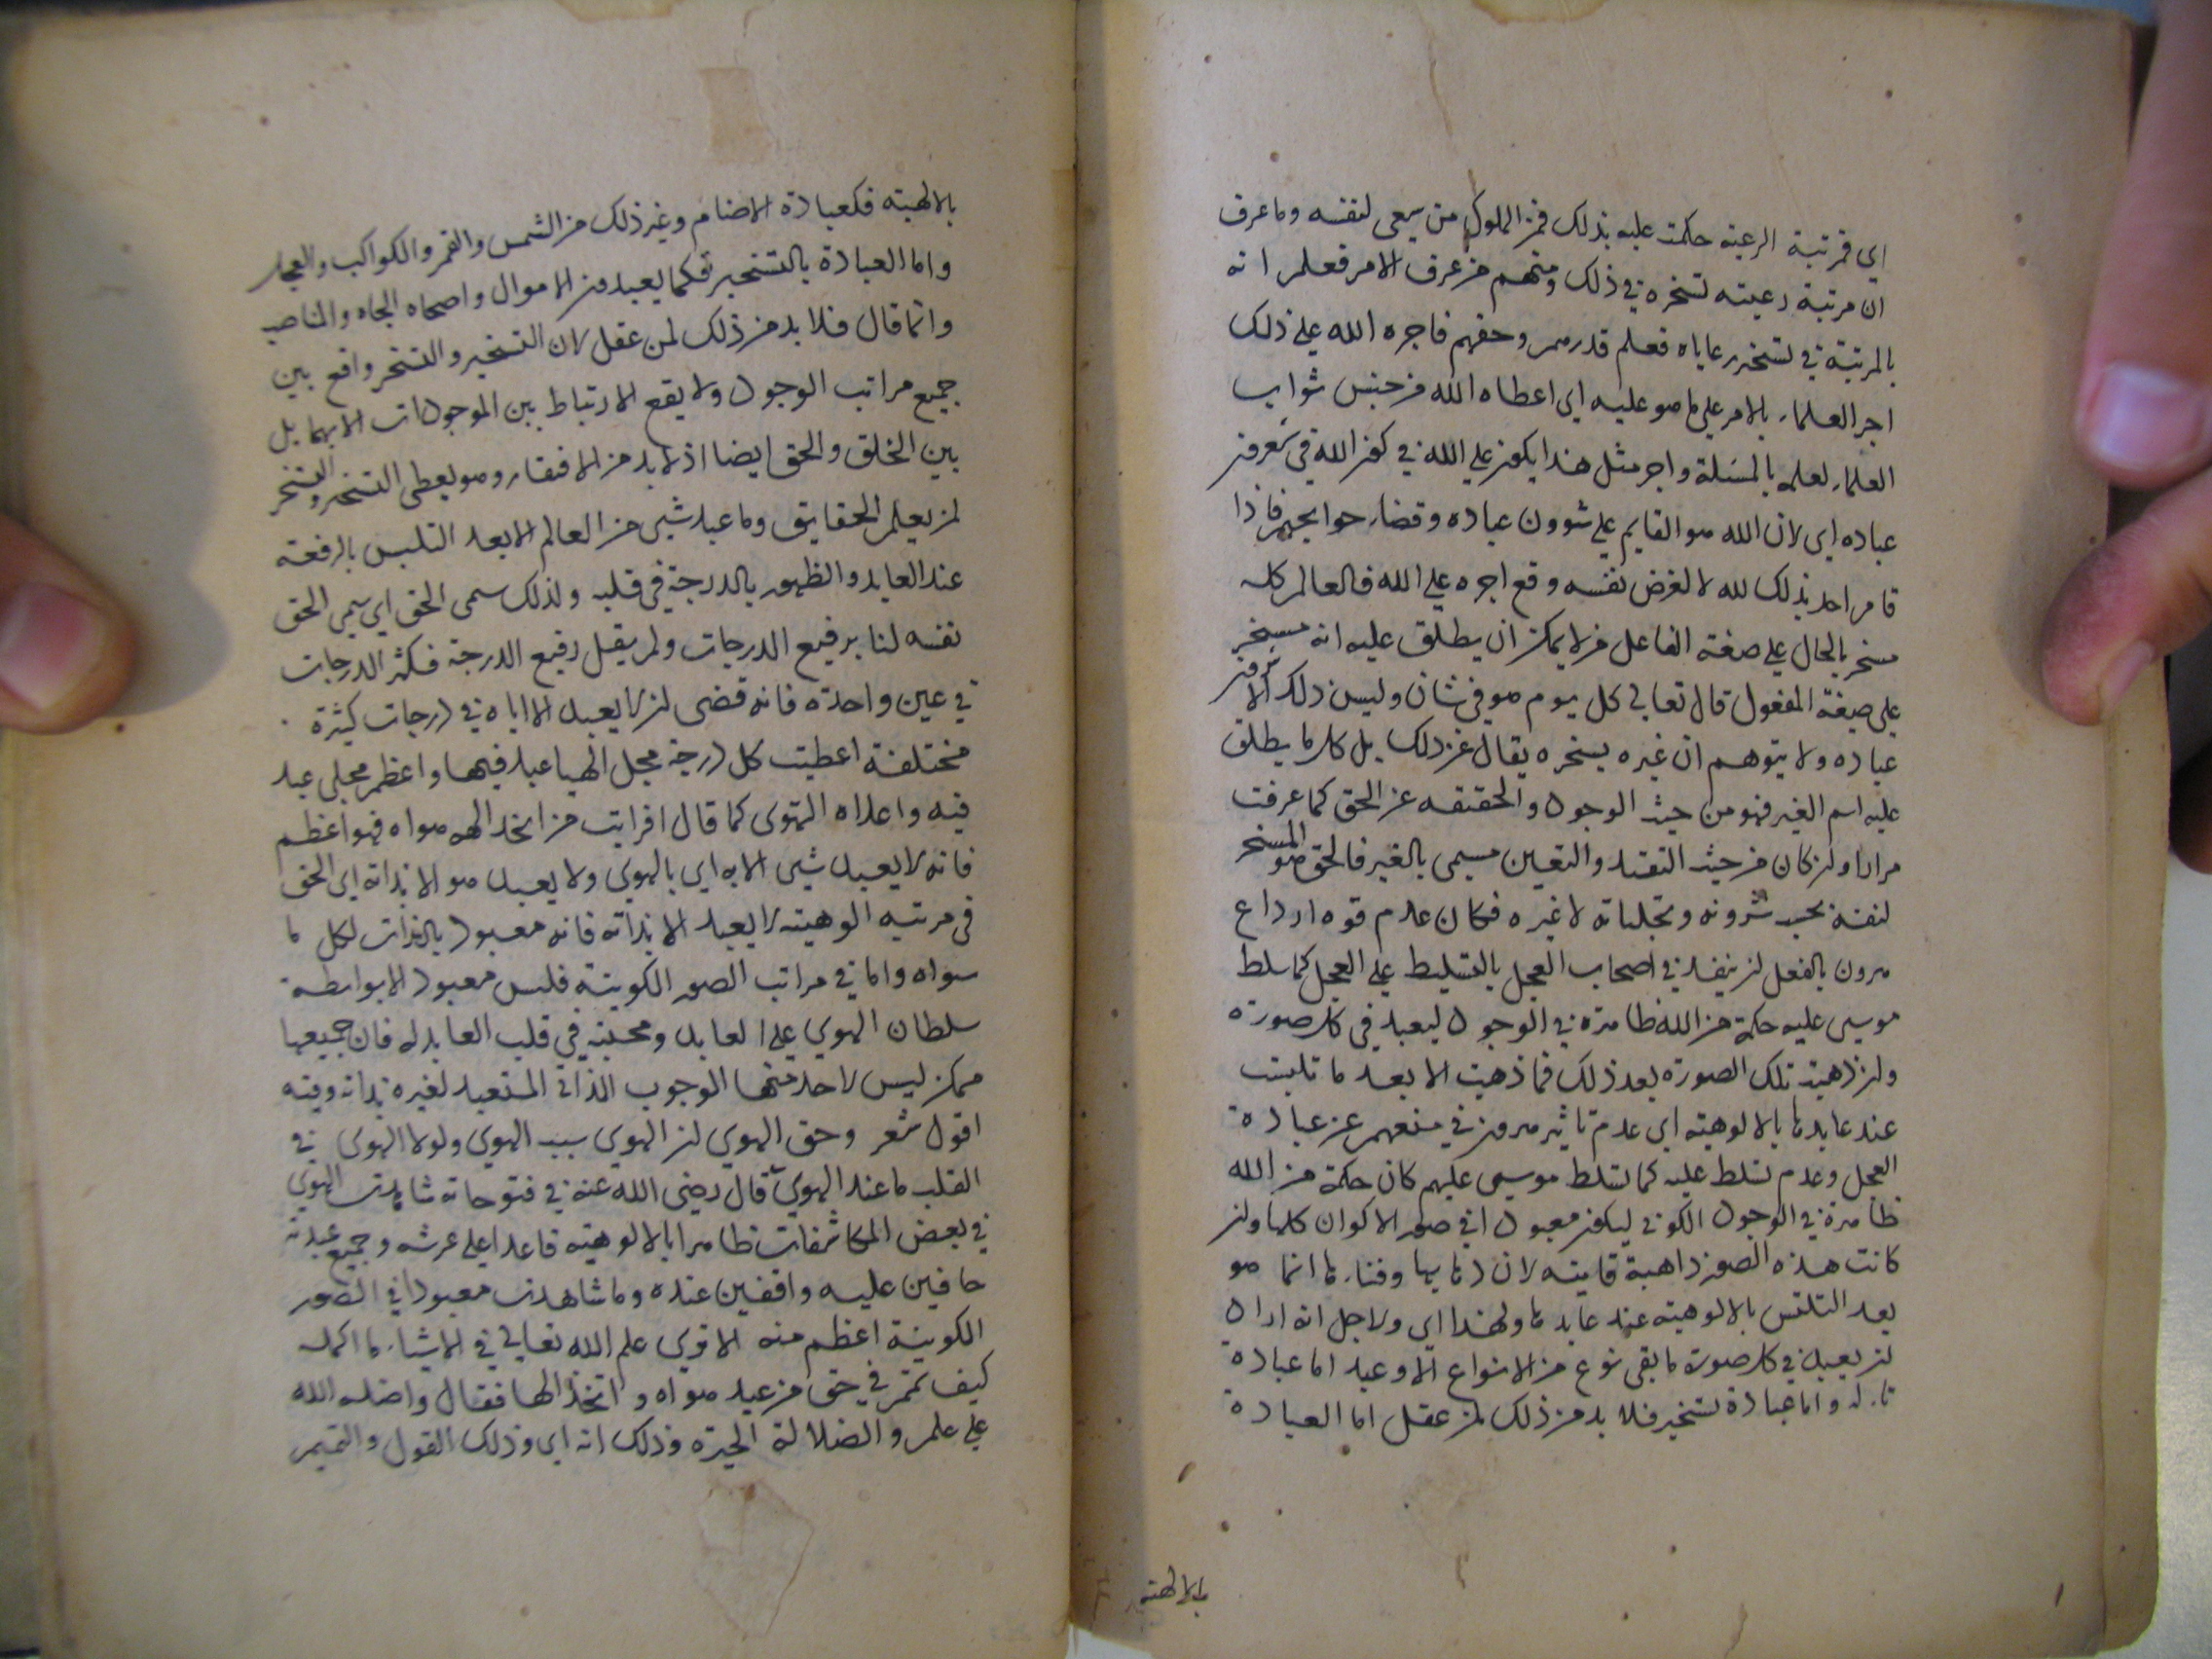 اي فمرتبة الرعية حكمت عليه بذلك فمن الملوك من يسعى لنفسه وما عرف
ان مرتبة رعيته تسخره في ذلك ومنهم من عرف الامر فعلم انه
بالمرتبة في تسخير رعاياه فعلم قدرهم وحقهم فاجره الله على ذلك
اجر العلماء بالامر على ما هو عليه اي اعطاه الله من جنس ثواب
العلماء لعلمه بالمسئلة واجر مثل هذا يكون على الله في كون الله في شؤون
عباده اي لان الله هو القايم على شوون عباده وقضاء حوايجهم فاذا
قام احد بذلك لله لا لغرض نفسه وقع اجره على الله فالعالم كله
مسخر بالحال على صيغة الفاعل من لا يمكن ان يطلق عليه انه مسخر
على صيغة المفعول قال تعالى كل يوم هو في شان وليس ذلك الا شوون
عباده ولا يتوهم ان غيره يسخره يقال عن ذلك بل كل ما يطلق
عليه اسم الغير فهو من حيث الوجود والحقيقه عن الحق كما عرفت
مرارا وان كان من حيث التقيد والتعين مسمى بالغير فالحق هو المسخر
لنفسه بحسب شوونه وتجلياته لا غيره فكان عدم قوه ارداع
هرون بالفعل ان ينفذ في اصحاب العجل بالتسليط على العجل كما سلط
موسى عليه حكمة من الله ظاهرة في الوجود ليعبد في كل صورة
وان ذهبت تلك الصورة بعد ذلك فما ذهبت الا بعد ما تلبست
عند عابدها بالالوهية اي عدم تاثير هرون في منعهم عن عبادة
العجل وعدم تسلط عليه كما تسلط موسى عليهم كان حكمة من الله
ظاهرة في الوجود الكوني ليكون معبودا في صور الاكوان كلها وان
كانت هذه الصور ذاهبة فانية لان ذهابها وفناءها انما هو
بعد التلبس بالالوهية عند عابدها ولهذا اي ولاجل انه اراد
ان يعبد في كل صورة ما بقي نوع من الانواع الا وعبد اما عبادة
تاله واما عبادة تسخير فلا بد من ذلك لمن عقل اما العبادة
بالالهية
بالالهية فكعبادة الاصنام وغير ذلك من الشمس والقمر والكواكب والعجل
واما العبادة بالتسخير فكما يعبدون الاموال واصحاه الجاه والمناصب
وانما قال فلا بد من ذلك لمن عقل لان التسخير والتسخر واقع بين
جميع مراتب الوجود ولا يقع الارتباط بين الموجودات الا بهما بل
بين الخلق والحق ايضا اذ لا بد من الافتقار وهو يعطى التسخير والتسخر
لمن يعلم الحقايق وما عبد شيى من العالم الا بعد التلبس بالرفعة
عند العابد والظهور بالدرجة في قلبه ولذلك سمى الحق اي سمى الحق
نفسه لنا برفيع الدرجات ولم يقل رفيع الدرجة فكثر الدرجات
في عين واحدة فانه قضى ان لا يعبد الا اياه في درجات كثيرة
مختلفة اعطيت كل درجة مجلى الهيا عبد فيها واعظم مجلى عبد
فيه واعلاه الهوى كما قال افرايت من اتخذ الهه هواه فهو اعظم
فانه لا يعبد شيى الا به اي بالهوى ولا يعبد هو الا بذاته اي الحق
في مرتبه الوهيته لا يعبد الا بذاته فانه معبود بالذات لكل ما
سواه واما في مراتب الصور الكونية فليس معبودا الا بواسطة
سلطان الهوى على العابد ومحبته في قلب العابد له فان جميعها
ممكن ليس لاحد منها الوجوب الذاتي المستعبد لغيره بذاته وفيه
اقول شعر وحق الهوى ان الهوى سبب الهوى ولولا الهوى في
القلب ما عبد الهوى قال رضى الله عنه في فتوحاته شاهدت الهوى
في بعض المكاشفات ظاهرا بالالوهية قاعدا على عرشه وجميع عبدته
حافين عليه واقفين عنده وما شاهدت معبودا في الصور
الكونية اعظم منه الا ترى علم الله تعالى في الاشياء ما اكمله
كيف تمم في حق من عبد هواه واتخذه الها فقال واضله الله
على علم والضلالة الحيرة وذلك انه اي وذلك القول والتميم